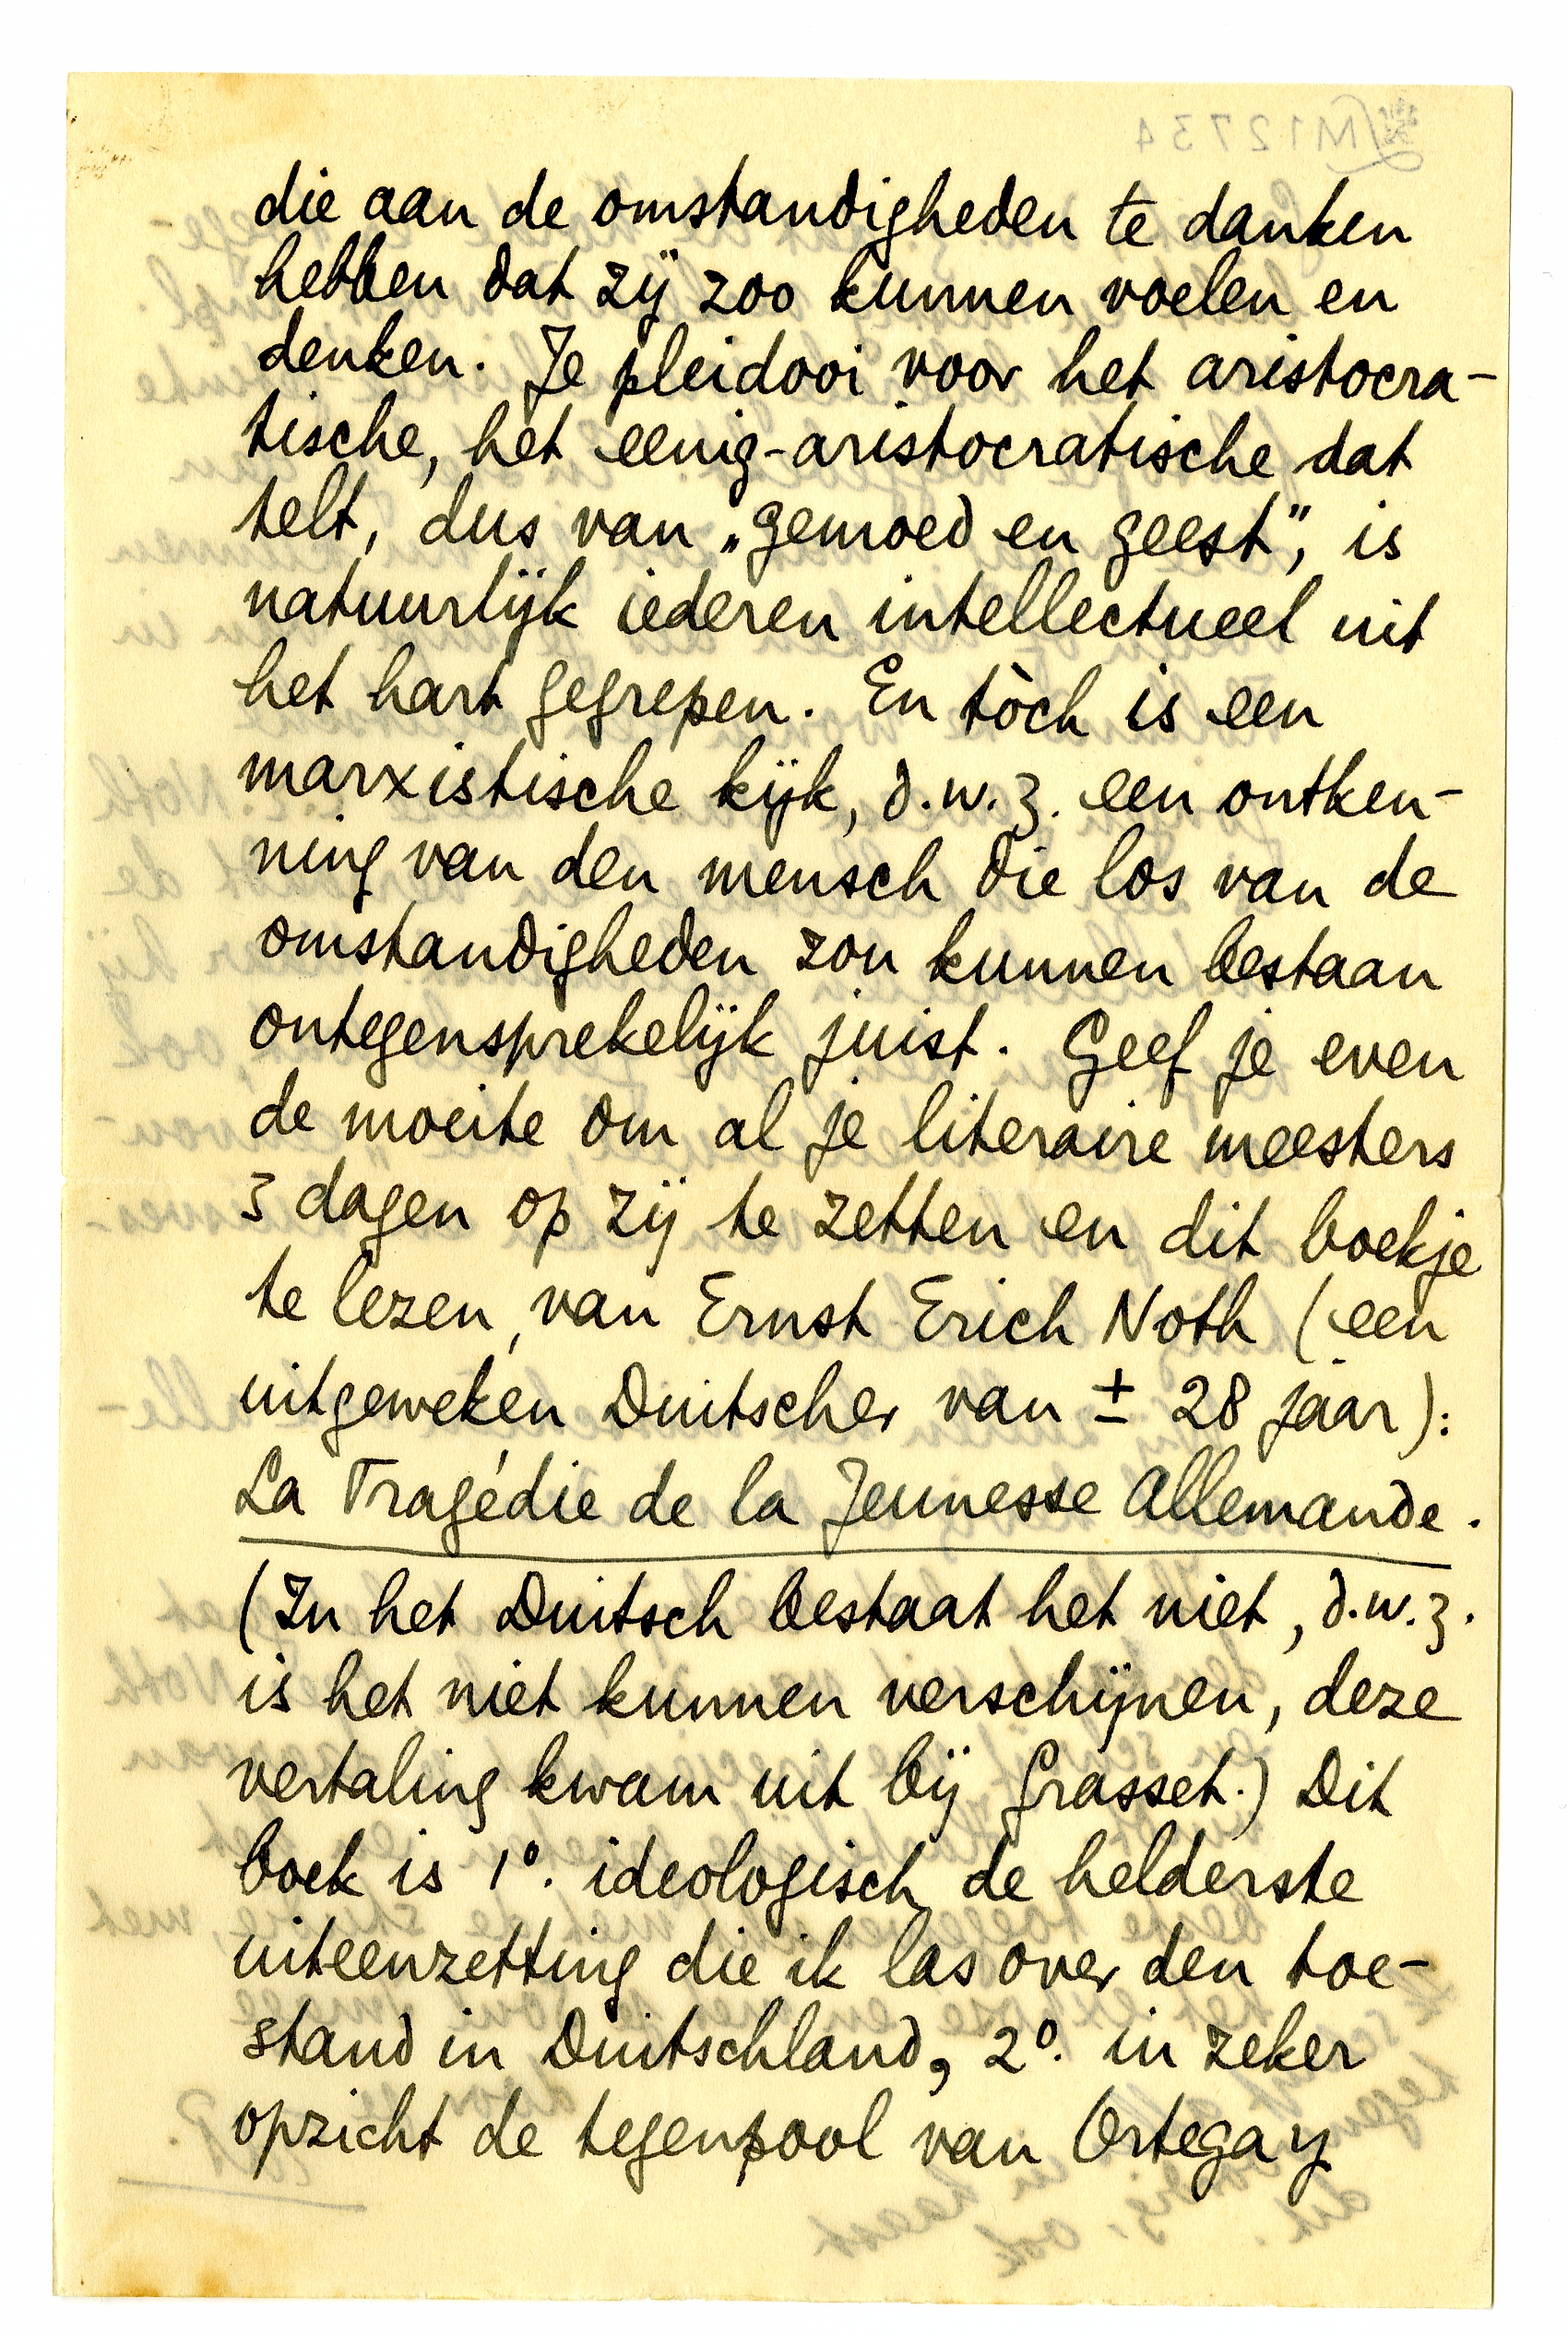 die aan de omstandigheden te danken
hebben dat zij zoo kunnen voelen en
denken. Je pleidooi voor het aristocra-
tische, het eenig-aristocratische dat
telt, dus van „gemoed en geest", is
natuurlijk iederen intellectueel uit
het hart gegrepen. En tòch is een
marxistische kijk, d.w.z. een ontken-
ning van den mensch die los van de
omstandigheden zou kunnen bestaan
ontegensprekelijk juist. Geef je even
de moeite om al je literaire meesters
3 dagen op zij te zetten en dit boekje
te lezen, van Ernst Erich Noth (een
uitgeweken Duitscher van ± 28 jaar):
La Tragédie de la Jeunesse Allemande.
(In het Duitsch bestaat het niet, d.w.z.
is het niet kunnen verschijnen, deze
vertaling kwam uit bij Grasset.) Dit
boek is 1º. ideologisch de helderste
uiteenzetting die ik las over den toe-
stand in Duitschland, 2º. in zeker
opzicht de tegenpool van Ortega y